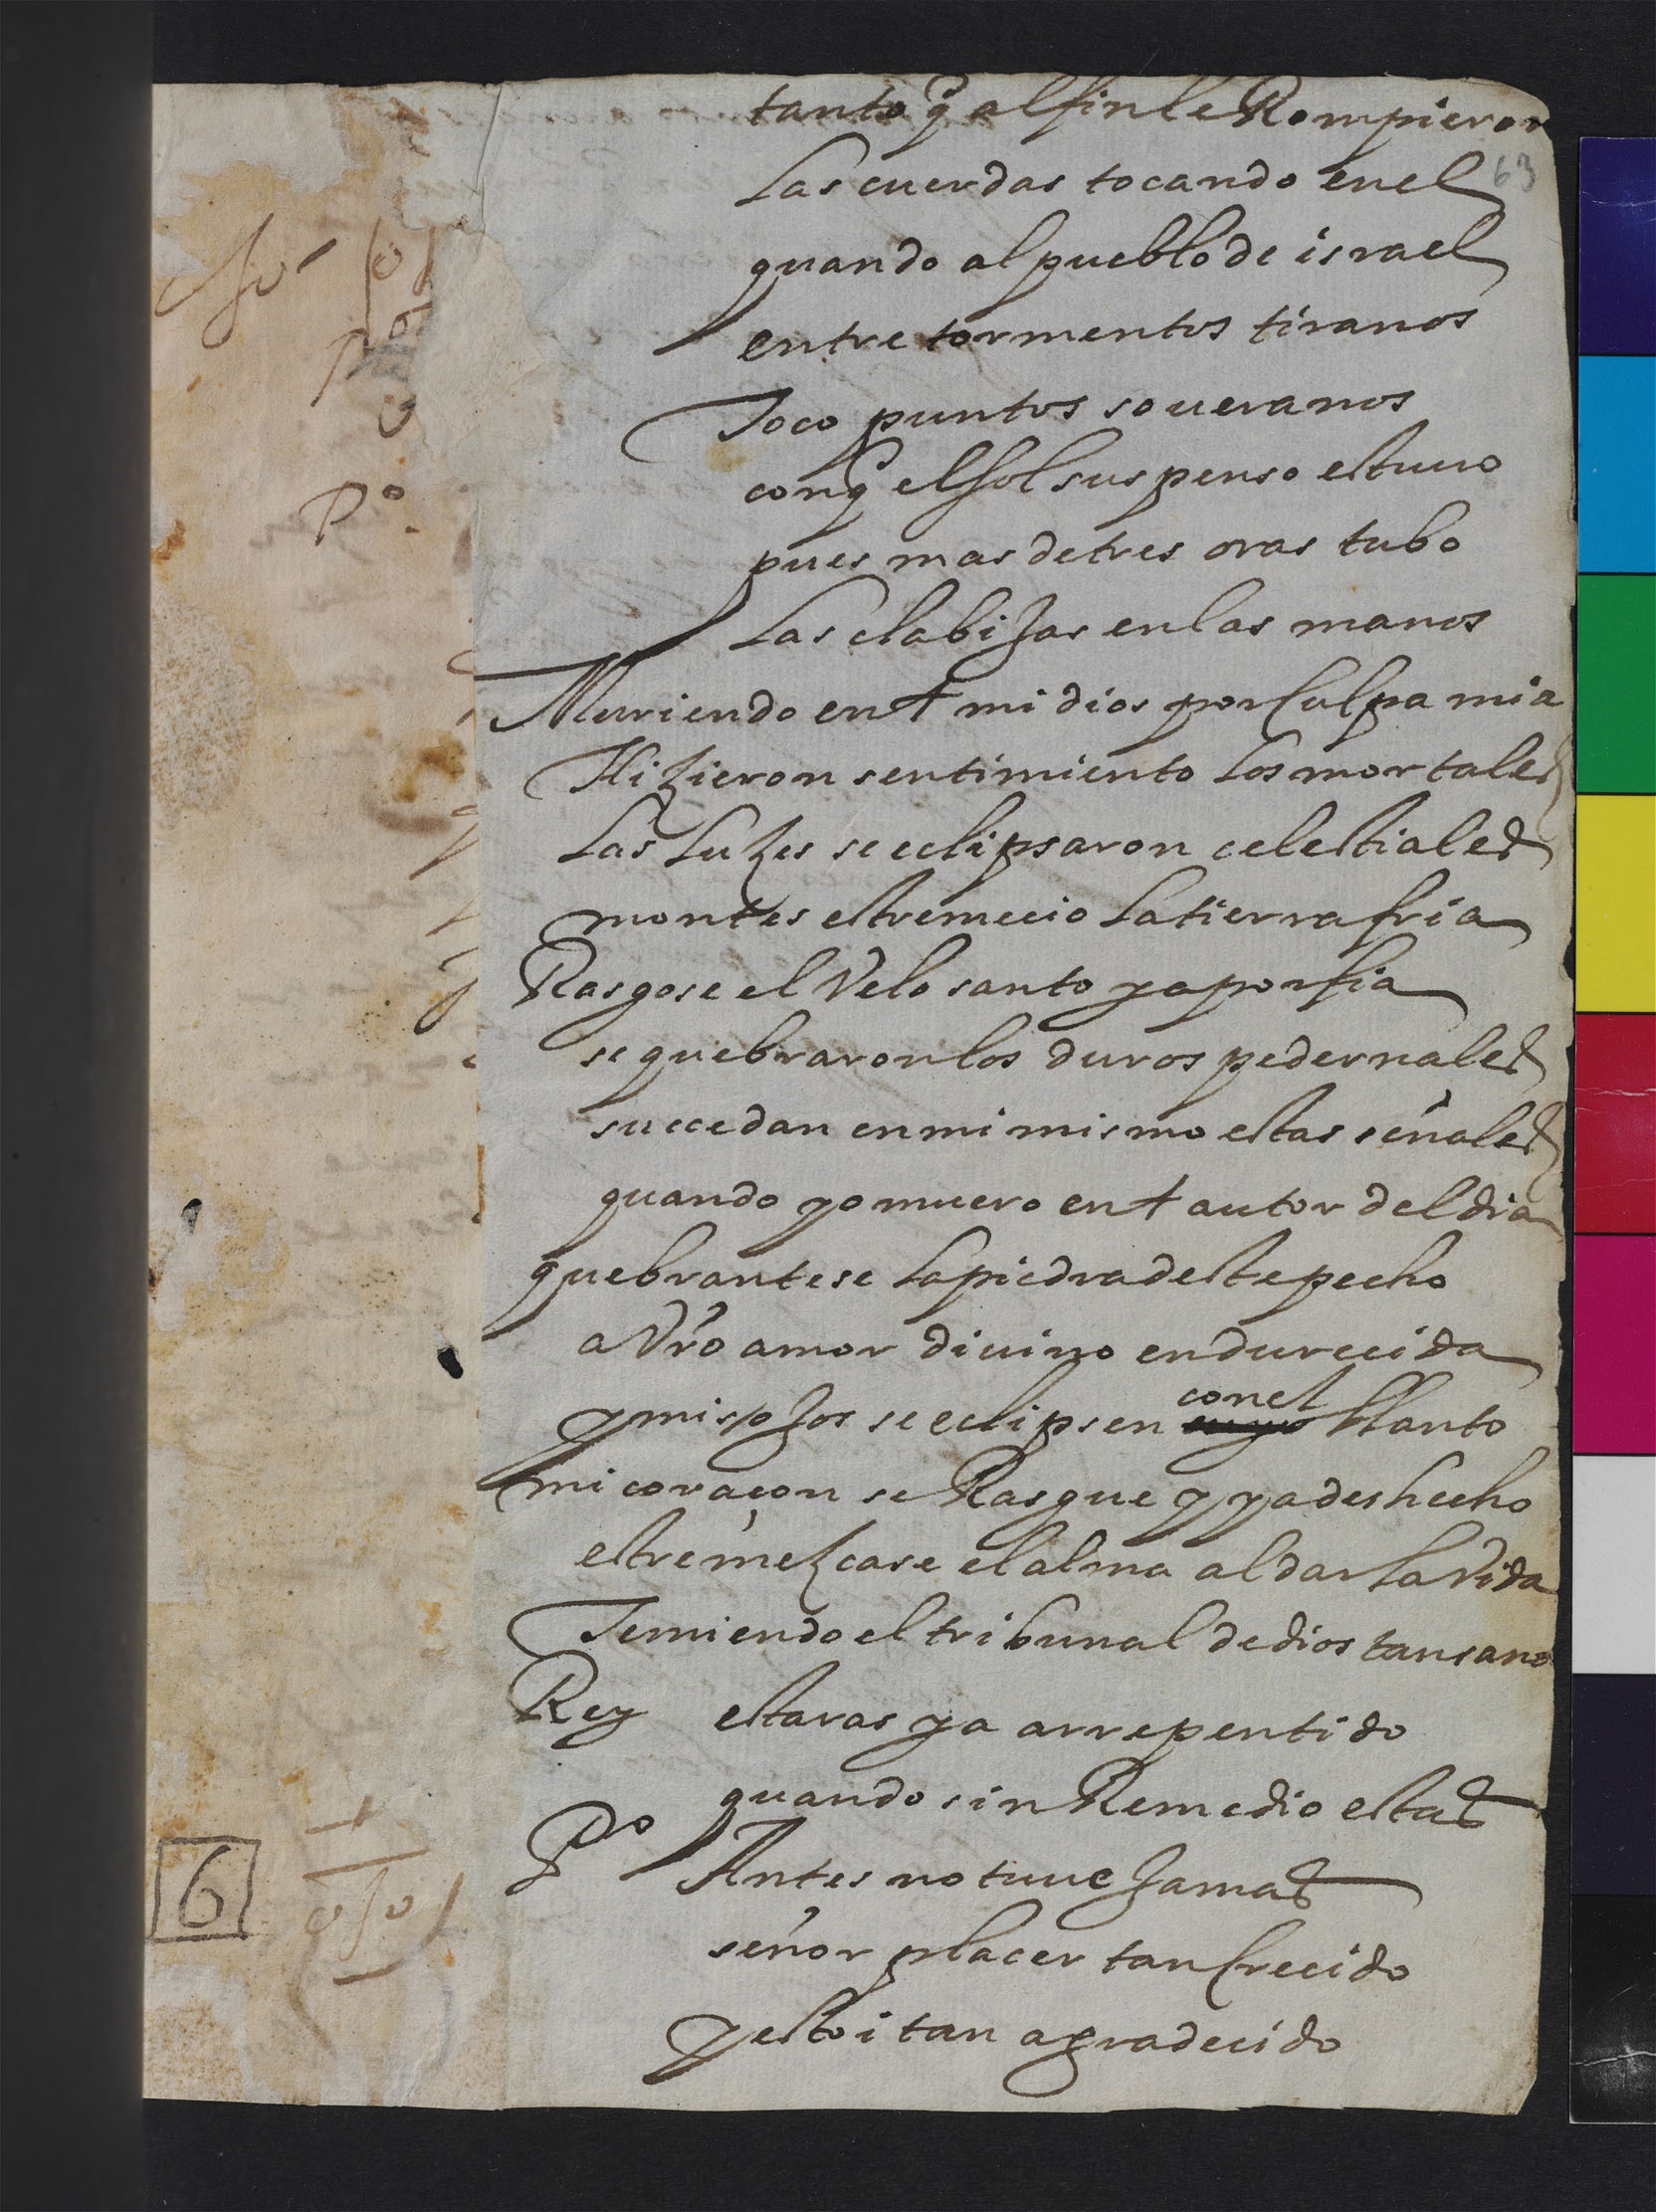 tanto q̃ al fin le Rompieron
63
las cuerdas tocando en el
quando al pueblo de israel
entre tormentos tiranos
Toco puntos soueranos
con q̃ el sol suspenso estuuo
pues mas de tres oras tubo
las clabijas en las manos
Muriendo en † mi dios por culpa mia
Hizieron sentimiento los mortales
las luzes se eclipsaron celestiales
montes estremecio la tierra fria
Rasgose el Velo santo y a porfia
se quebraron los duros pedernales
succedan en mi mismo estas señales
quando yo muero en † autor del dia
quebrantese la piedra deste pecho
a Vr̃o amor diuino endurecida
y mis ojos se eclipsen con el llanto
mi coraçon se Rasgue y ya deshecho
estremezcase el alma al dar la Vida
Temiendo el tribunal de dios tan sano
Rey estaras ya arrepentido
quando sin Remedio estas
Pº Antes no tuue jamas
señor placer tan crecido
y estoi tan agradecido
Pº
6